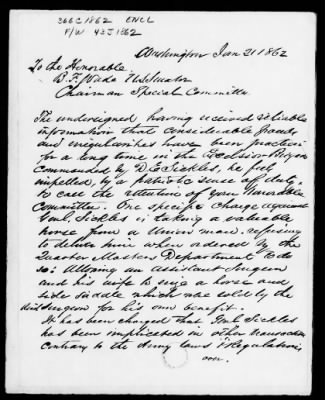 366 C 1862 ENCL
F/W 43 J 1862
Washington Jan 21 1862
To the Honorable
B. F. Wade U.S. Senator
Chairman Special Committee
The undersigned having received reliable
information that considerable frauds
and irregularities have been practiced
for a long time in the Excelsior Brigade
commanded by D. E. Sickles, he feels
impelled, by a patriotic sense of duty,
to call the attention of your Honorable
Committee. One specific charge against
Genl. Sickles is taking a valuable
horse from a Union man, refusing
to deliver him when ordered by the
Quarter Masters Department to do
so: Allowing an assistant surgeon
and his wife to seize a horse and
side saddle which was sold by the
asst surgeon for his own benefit.
It has been charged that Genl Sickles
has been implicated in other transactions
contrary to the Army laws & Regulations
over.